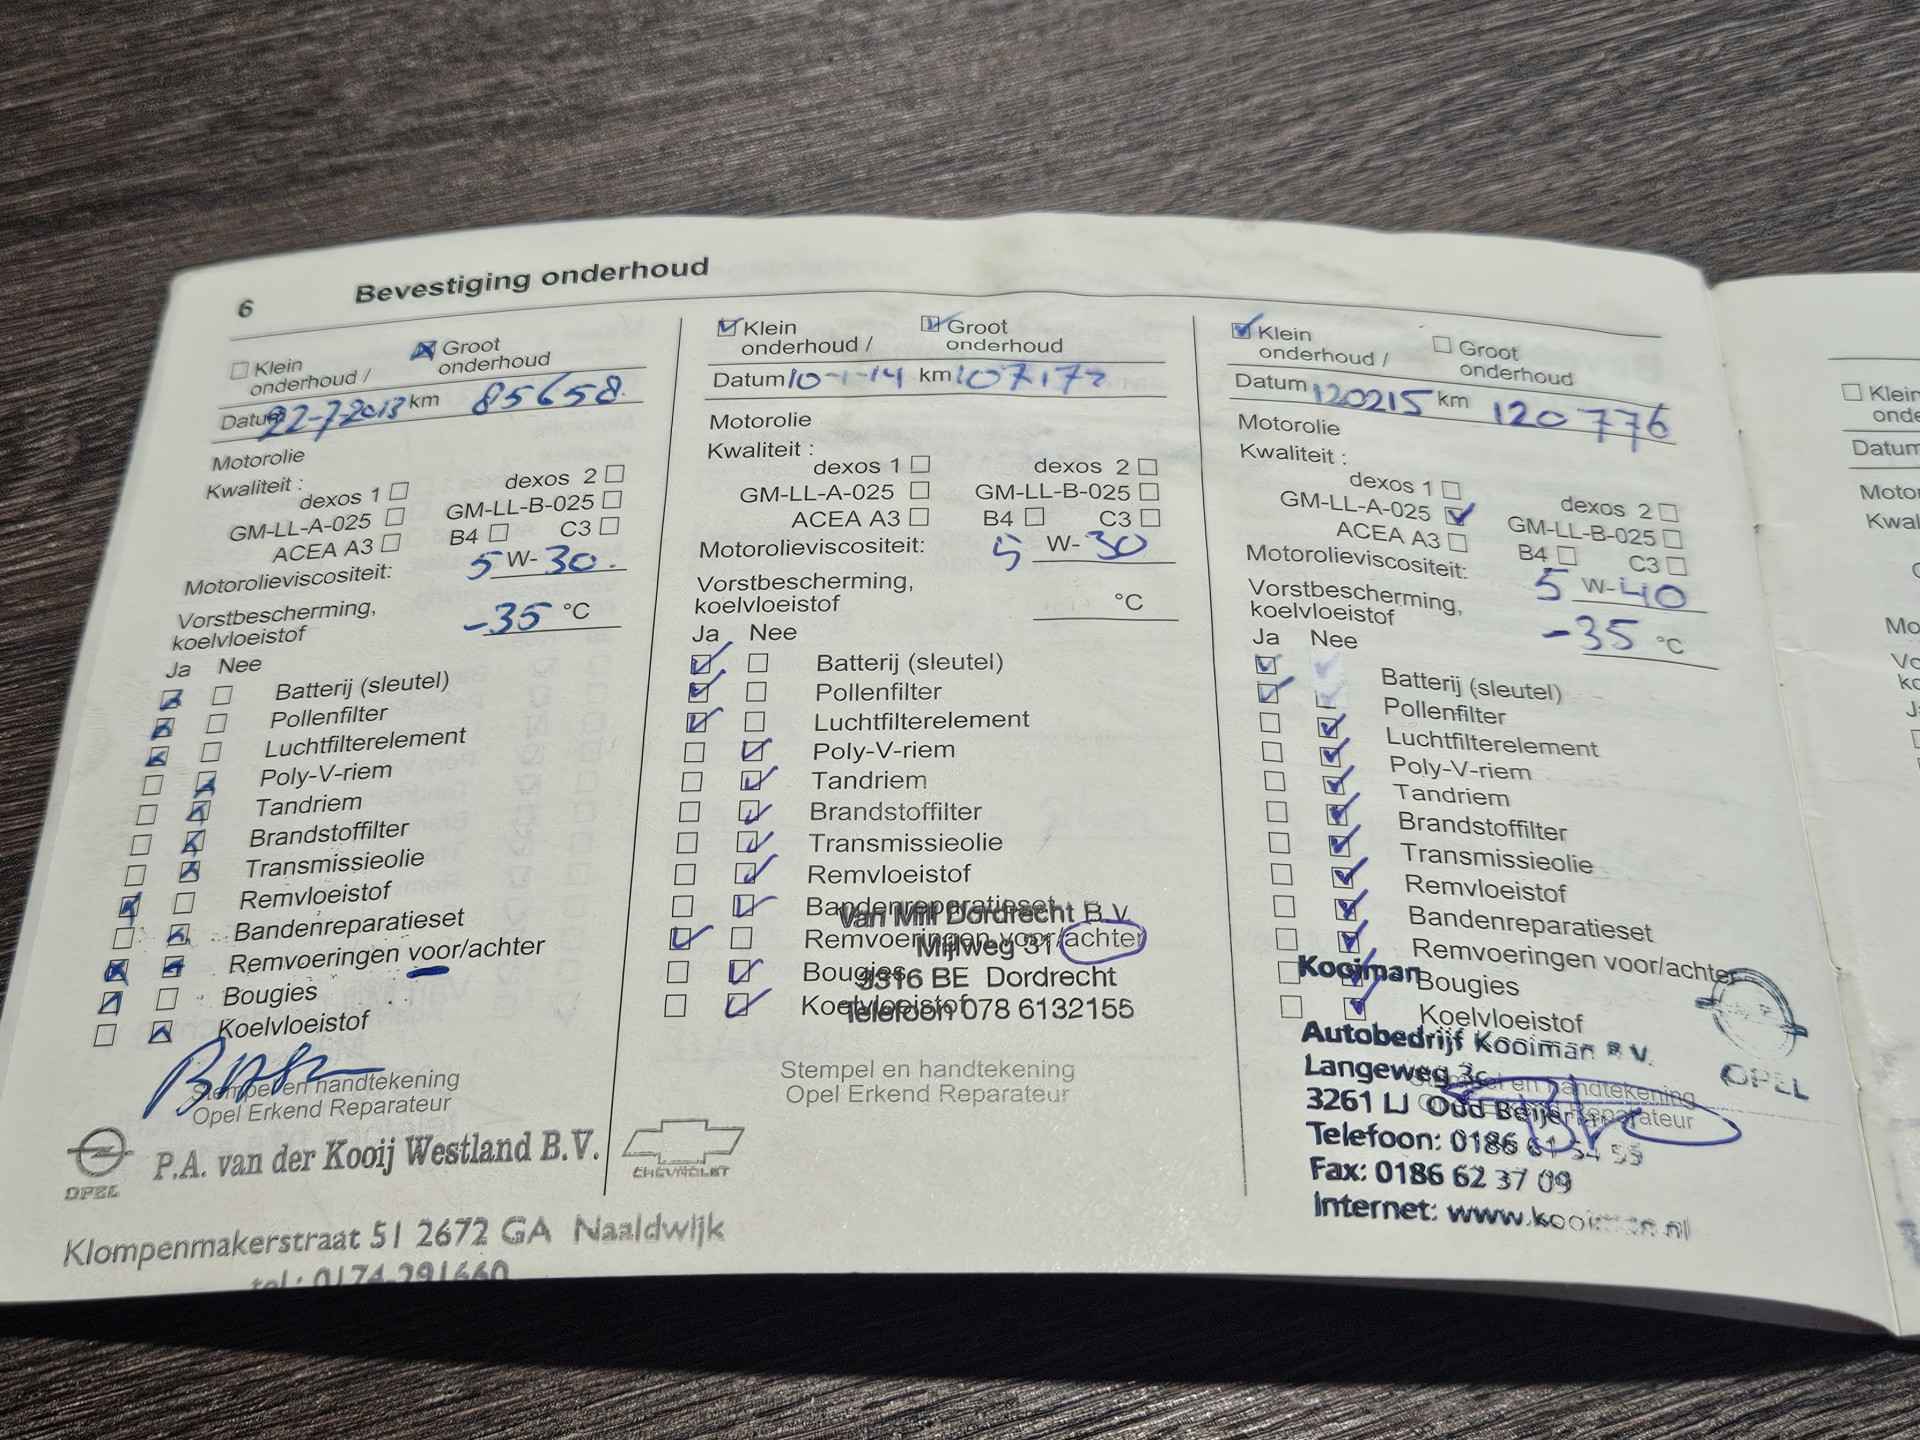 6 Bevestiging onderhoud
Klein onderhoud /
Groot onderhoud
Datum 22-7-2013 km 85658.
Motorolie
Kwaliteit :
dexos 1 dexos 2
GM-LL-A-025 GM-LL-B-025
ACEA A3 B4 C3
Motorolieviscositeit: 5 W- 30.
Vorstbescherming,
koelvloeistof -35 °C
Ja Nee
Batterij (sleutel)
Pollenfilter
Luchtfilterelement
Poly-V-riem
Tandriem
Brandstoffilter
Transmissieolie
Remvloeistof
Bandenreparatieset
Remvoeringen voor/achter
Bougies
Koelvloeistof
Stempel en handtekening
Opel Erkend Reparateur
OPEL
P.A. van der Kooij Westland B.V.
CHEVROLET
Klompenmakerstraat 51 2672 GA Naaldwijk
tel.: 0174-291660
Klein
onderhoud /
Groot
onderhoud
Datum 10-1-14 km 107177
Motorolie
Kwaliteit :
dexos 1 dexos 2
GM-LL-A-025 GM-LL-B-025
ACEA A3 B4 C3
Motorolieviscositeit: 5 W- 30
Vorstbescherming,
koelvloeistof °C
Ja Nee
Batterij (sleutel)
Pollenfilter
Luchtfilterelement
Poly-V-riem
Tandriem
Brandstoffilter
Transmissieolie
Remvloeistof
Bandenreparatieset
Van Mill Dordrecht B.V.
Remvoeringen voor/achter
Mijlweg 31
Bougies
3316 BE Dordrecht
Koelvloeistof
Telefoon 078 6132155
Stempel en handtekening
Opel Erkend Reparateur
Klein
onderhoud /
Groot
onderhoud
Datum 120215 km 120776
Motorolie
Kwaliteit :
dexos 1 dexos 2
GM-LL-A-025 GM-LL-B-025
ACEA A3 B4 C3
Motorolieviscositeit: 5 W- 40
Vorstbescherming,
koelvloeistof -35 °C
Ja Nee
Batterij (sleutel)
Pollenfilter
Luchtfilterelement
Poly-V-riem
Tandriem
Brandstoffilter
Transmissieolie
Remvloeistof
Bandenreparatieset
Remvoeringen voor/achter
Kooiman
Bougies
Koelvloeistof
OPEL
Autobedrijf Kooiman B.V.
Langeweg 3c
Stempel en handtekening
3261 LJ Oud Beijer
Reparateur
Telefoon: 0186 61 54 55
Fax: 0186 62 37 09
Internet: www.kooiman.nl
Klein
Datum